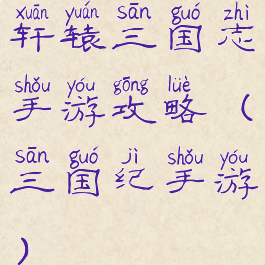 xuān yuán sān guó zhì
轩辕三国志
shǒu yóu gōng lüè
手游攻略(
sān guó jì shǒu yóu
三国纪手游
)